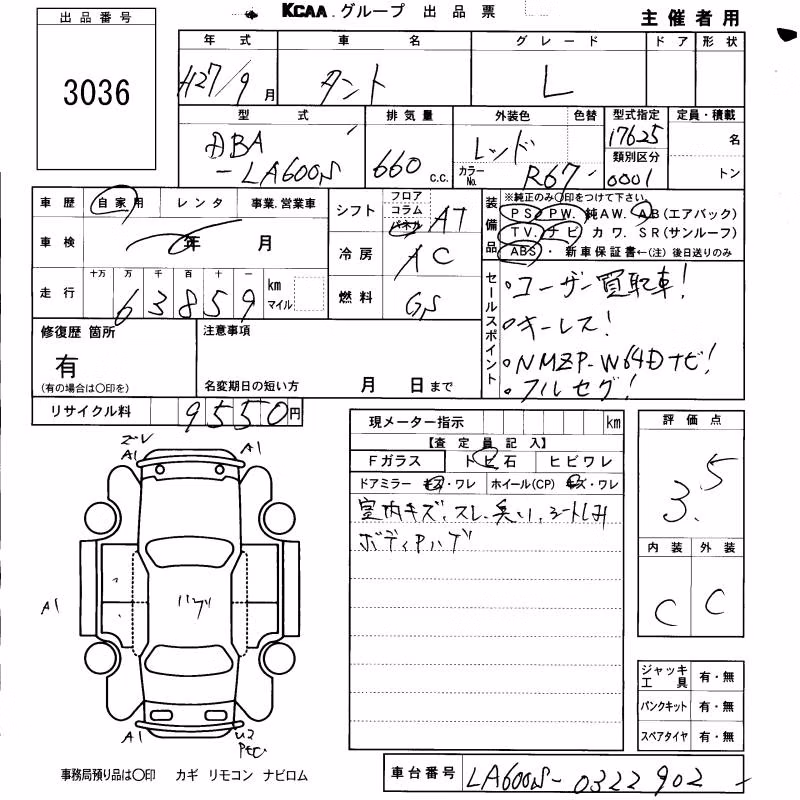 KCAA グループ 出品票
主催者用
出品番号
3036
年式 車名 グレード ドア 形状
H27/9月 タント L
型式 排気量 外装色 色替 型式指定 定員・積載
DBA-LA600S 660 c.c. レッド カラーNo. R67 17625 名
類別区分
0001 トン
車歴 自家用 レンタ 事業.営業車
シフト フロア コラム パネル AT
装備品 ※純正のみ〇印をつけて下さい。
PS. PW. 純AW. AB(エアバック)
TV. ナビ カワ. SR(サンルーフ)
ABS・ 新車保証書←(注) 後日送りのみ
車検 年 月
冷房 AC
走行 十万 万 千 百 十 一 km マイル
63859
燃料 GS
セールスポイント
・ユーザー買取車!
・キーレス!
・NMZP-W64Dナビ!
・フルセグ!
修復歴 箇所
有
(有の場合は〇印を)
注意事項
名変期日の短い方 月 日まで
リサイクル料 9550円
現メーター指示 km
【査定員記入】
Fガラス トビ石 ヒビワレ
ドアミラー キズ・ワレ ホイール(CP) キズ・ワレ
室内キズ、スレ、臭い、シートしみ
ボディPハゲ
評価点
3.5
内装 外装
C C
A1
A1
A1
ハゲ
A1
U2
ジャッキ工具 有・無
パンクキット 有・無
スペアタイヤ 有・無
事務局預り品は〇印 カギ リモコン ナビロム
車台番号 LA600S-0322902